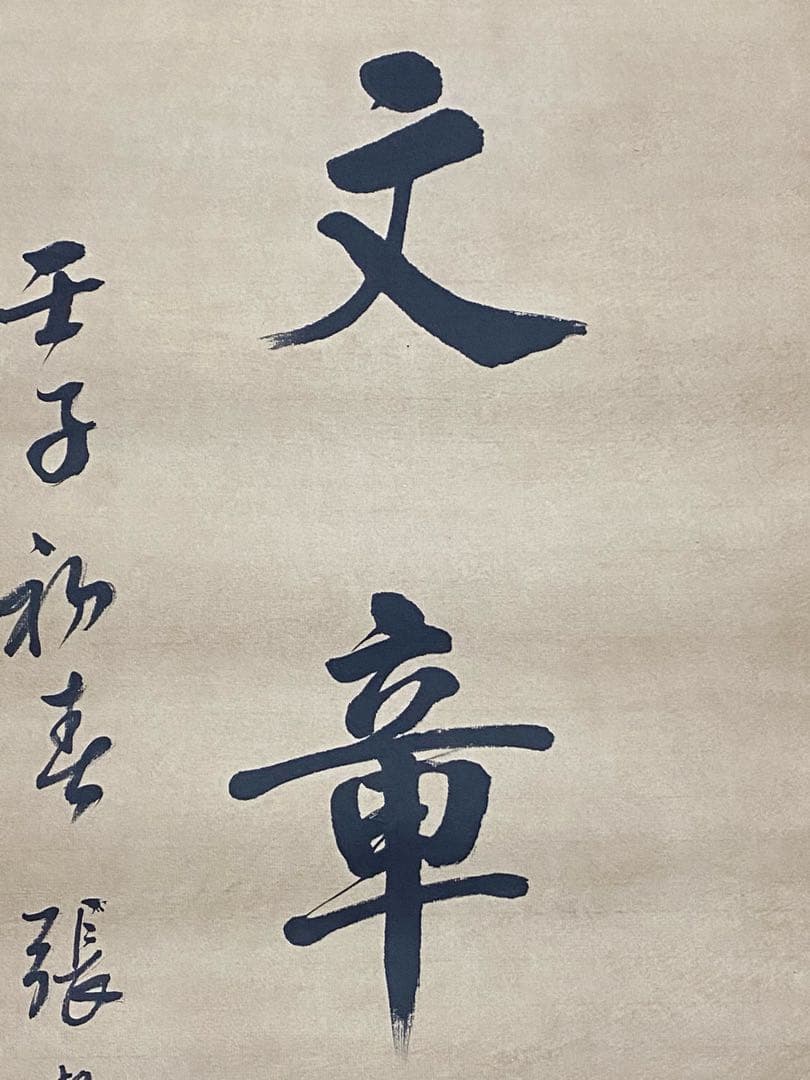 文章
壬子初春 張